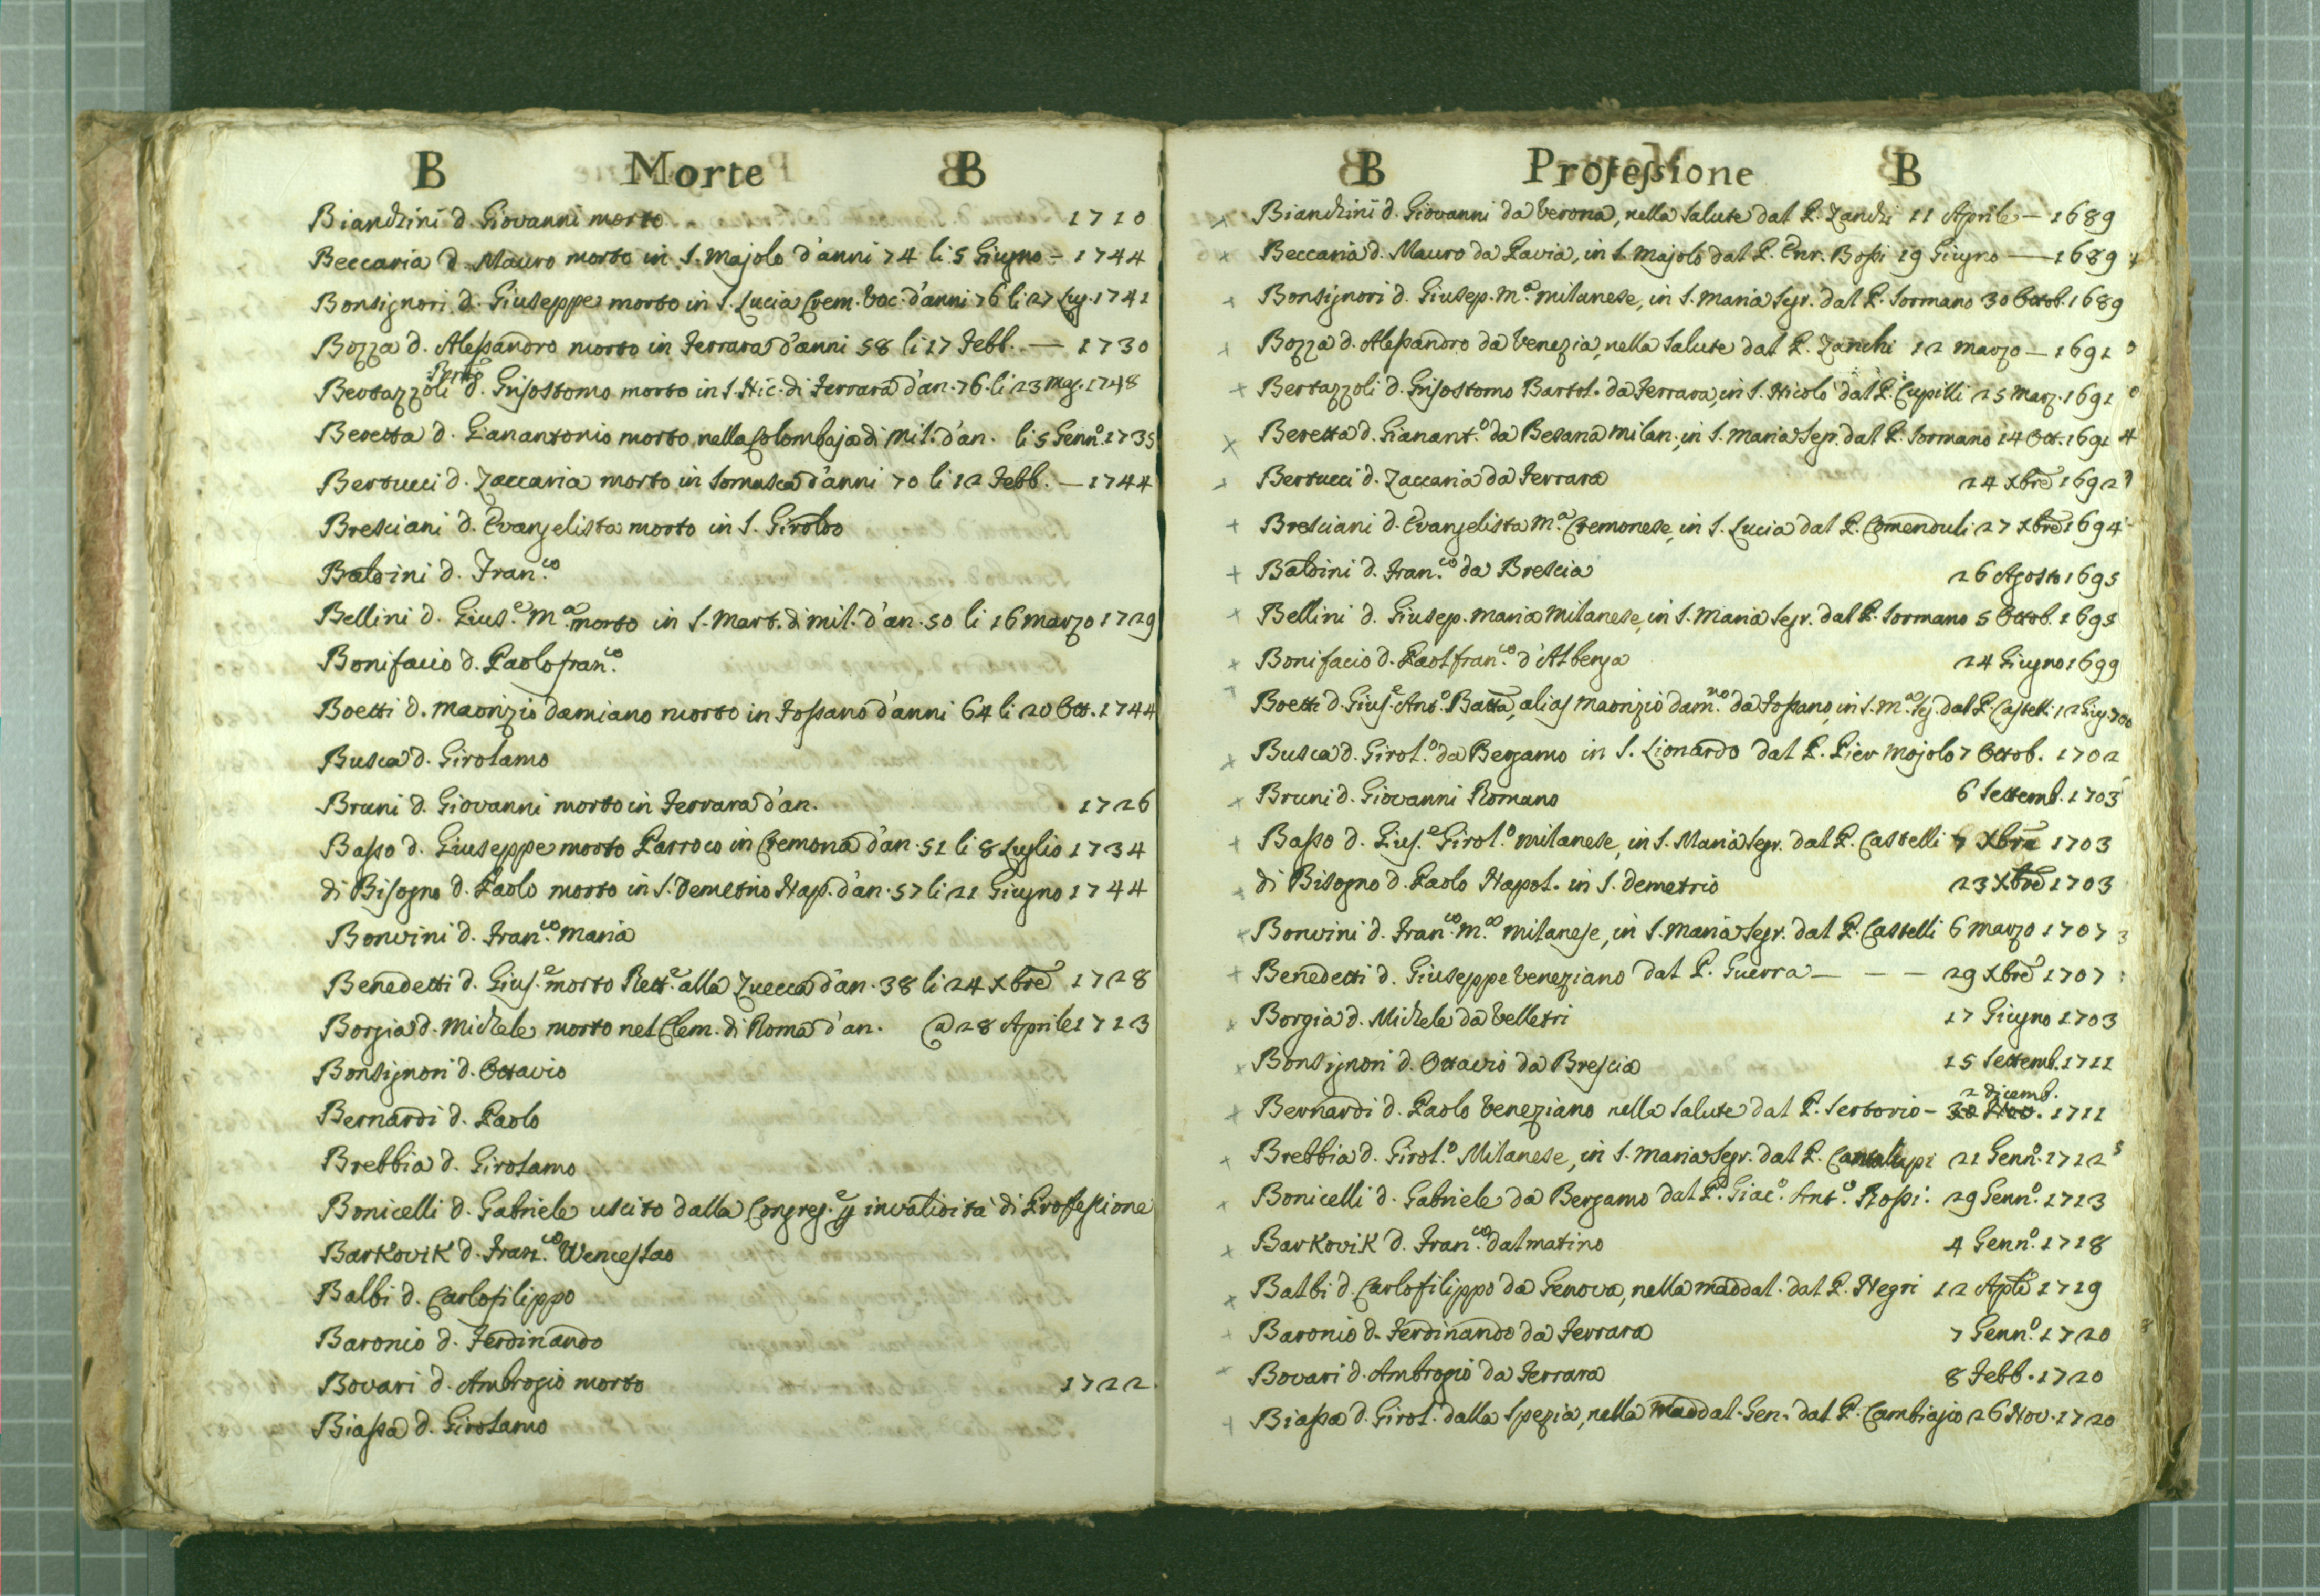 B Morte B
Bianchini d. Giovanni morto 1710
Beccaria d. Mauro morto in S. Majolo d'anni 74 li 5 Giugno - 1744
Bonsignori d. Giuseppe morto in S. Lucia Crem. Voc. d'anni 76 li 27 Lug. 1741
Bozza d. Alessandro morto in Ferrara d'anni 58 li 17 Febb. — 1730
Bertazzoli d. Grisostomo morto in S. Nic. di Ferrara d'an. 76. li 23 Mag. 1748
Beretta d. Gianantonio morto nella Colombaja di Mil. d'an. li 5 Genn.º 1735
Bertucci d. Zaccaria morto in Somasca d'anni 70 li 12 Febb. — 1744
Bresciani d. Evangelista morto in S. Giroldo
Baldini d. Fran.co
Bellini d. Gius.e M.a morto in S. Mart. di Mil. d'an. 50 li 16 marzo 1729
Bonifacio d. Paolofran.co
Boetti d. Maorizio damiano morto in Fossano d'anni 64 li 20 Ott. 1744
Busca d. Girolamo
Bruni d. Giovanni morto in Ferrara d'an. 1726
Basso d. Giuseppe morto Parroco in Cremona d'an. 51 li 8 Luglio 1734
di Bisogno d. Paolo morto in S. Demetrio Nap. d'an. 57 li 21 Giugno 1744
Bonvini d. Fran.co Maria
Benedetti d. Gius.e morto Rett.e alla Zuecca d'an. 38 li 24 Xbre 1728
Borgia d. Michele morto nel Clem. di Roma d'an. a 28 Aprile 1713
Bonsignori d. Ottavio
Bernardi d. Paolo
Brebbia d. Girolamo
Bonicelli d. Gabriele uscito dalla Congreg.e p invalidità di Professione
Barkovik d. Fran.co Wenceslao
Balbi d. Carlofilippo
Baronio d. Ferdinando
Bovari d. Ambrogio morto 1722.
Biassa d. Girolamo
B Professione B
Bianchini d. Giovanni da Verona, nella Salute dal P. Zanchi 11 Aprile — 1689
Beccaria d. Mauro da Pavia, in S. Majolo dal P. Enr. Bossi 19 Giugno — 1689
Bonsignori d. Giusep. M.a milanese, in S. Maria Segr. dal P. Sormano 30 Ottob. 1689
Bozza d. Alessandro da Venezia, nella Salute dal P. Zanchi 12 marzo — 1691
Bertazzoli d. Grisostomo Bartol. da Ferrara, in S. Nicolò dal P. Cupilli 25 Marz. 1691
Beretta d. Gianant.o da Besana Milan. in S. Maria Segr. dal P. Sormano 14 Ott. 1691
Bertucci d. Zaccaria da Ferrara 24 Xbre 1692
Bresciani d. Evangelista M.a Cremonese, in S. Lucia dal P. Comenduli 27 Xbre 1694
Baldini d. Fran.co da Brescia 26 Agosto 1695
Bellini d. Giusep. Maria Milanese, in S. Maria Segr. dal P. Sormano 5 Ottob. 1695
Bonifacio d. Paolfran.co d'Albenga 24 Giugno 1699
Boetti d. Gius.e Ant.o Batta, alias Maorizio dam.no da Fossano, in S. M.a Seg. dal P. Castelli 12 Giug 700
Busca d. Girol.o da Bergamo in S. Lionardo dal P. Pier Mojolo 7 Ottob. 1702
Bruni d. Giovanni Romano 6 Settemb. 1703
Basso d. Gius.e Girol.o milanese, in S. Maria Segr. dal P. Castelli Xbre 1703
di Bisogno d. Paolo Napol. in S. Demetrio 23 Xbre 1703
Bonvini d. Fran.co M.a milanese, in S. Maria Segr. dal P. Castelli 6 marzo 1707
Benedetti d. Giuseppe Veneziano dal P. Guerra — — — 29 Xbre 1707
Borgia d. Michele da Velletri 17 Giugno 1703
Bonsignori d. Ottavio da Brescia 15 Settemb. 1711
2 dicemb.
Bernardi d. Paolo Veneziano nella Salute dal P. Sertorio - 30 Nov. 1711
Brebbia d. Girol.o Milanese, in S. Maria Segr. dal P. Cantalupi 21 Genn.o 1712
Bonicelli d. Gabriele da Bergamo dal P. Giac.o Ant.o Rossi. 29 Genn.o 1713
Barkovik d. Fran.co dalmatino 4 Genn.o 1718
Balbi d. Carlofilippo da Genova, nella Maddal. dal P. Negri 12 Aple 1719
Baronio d. Ferdinando da Ferrara 7 Genn.o 1720
Bovari d. Ambrogio da Ferrara 8 Febb. 1720
Biassa d. Girol. dalla Spezia, nella Maddal. Gen. dal P. Cambiajio 26 Nov. 1720